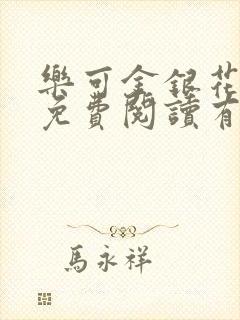 樂可金銀花
免費閱讀有
馬永祥